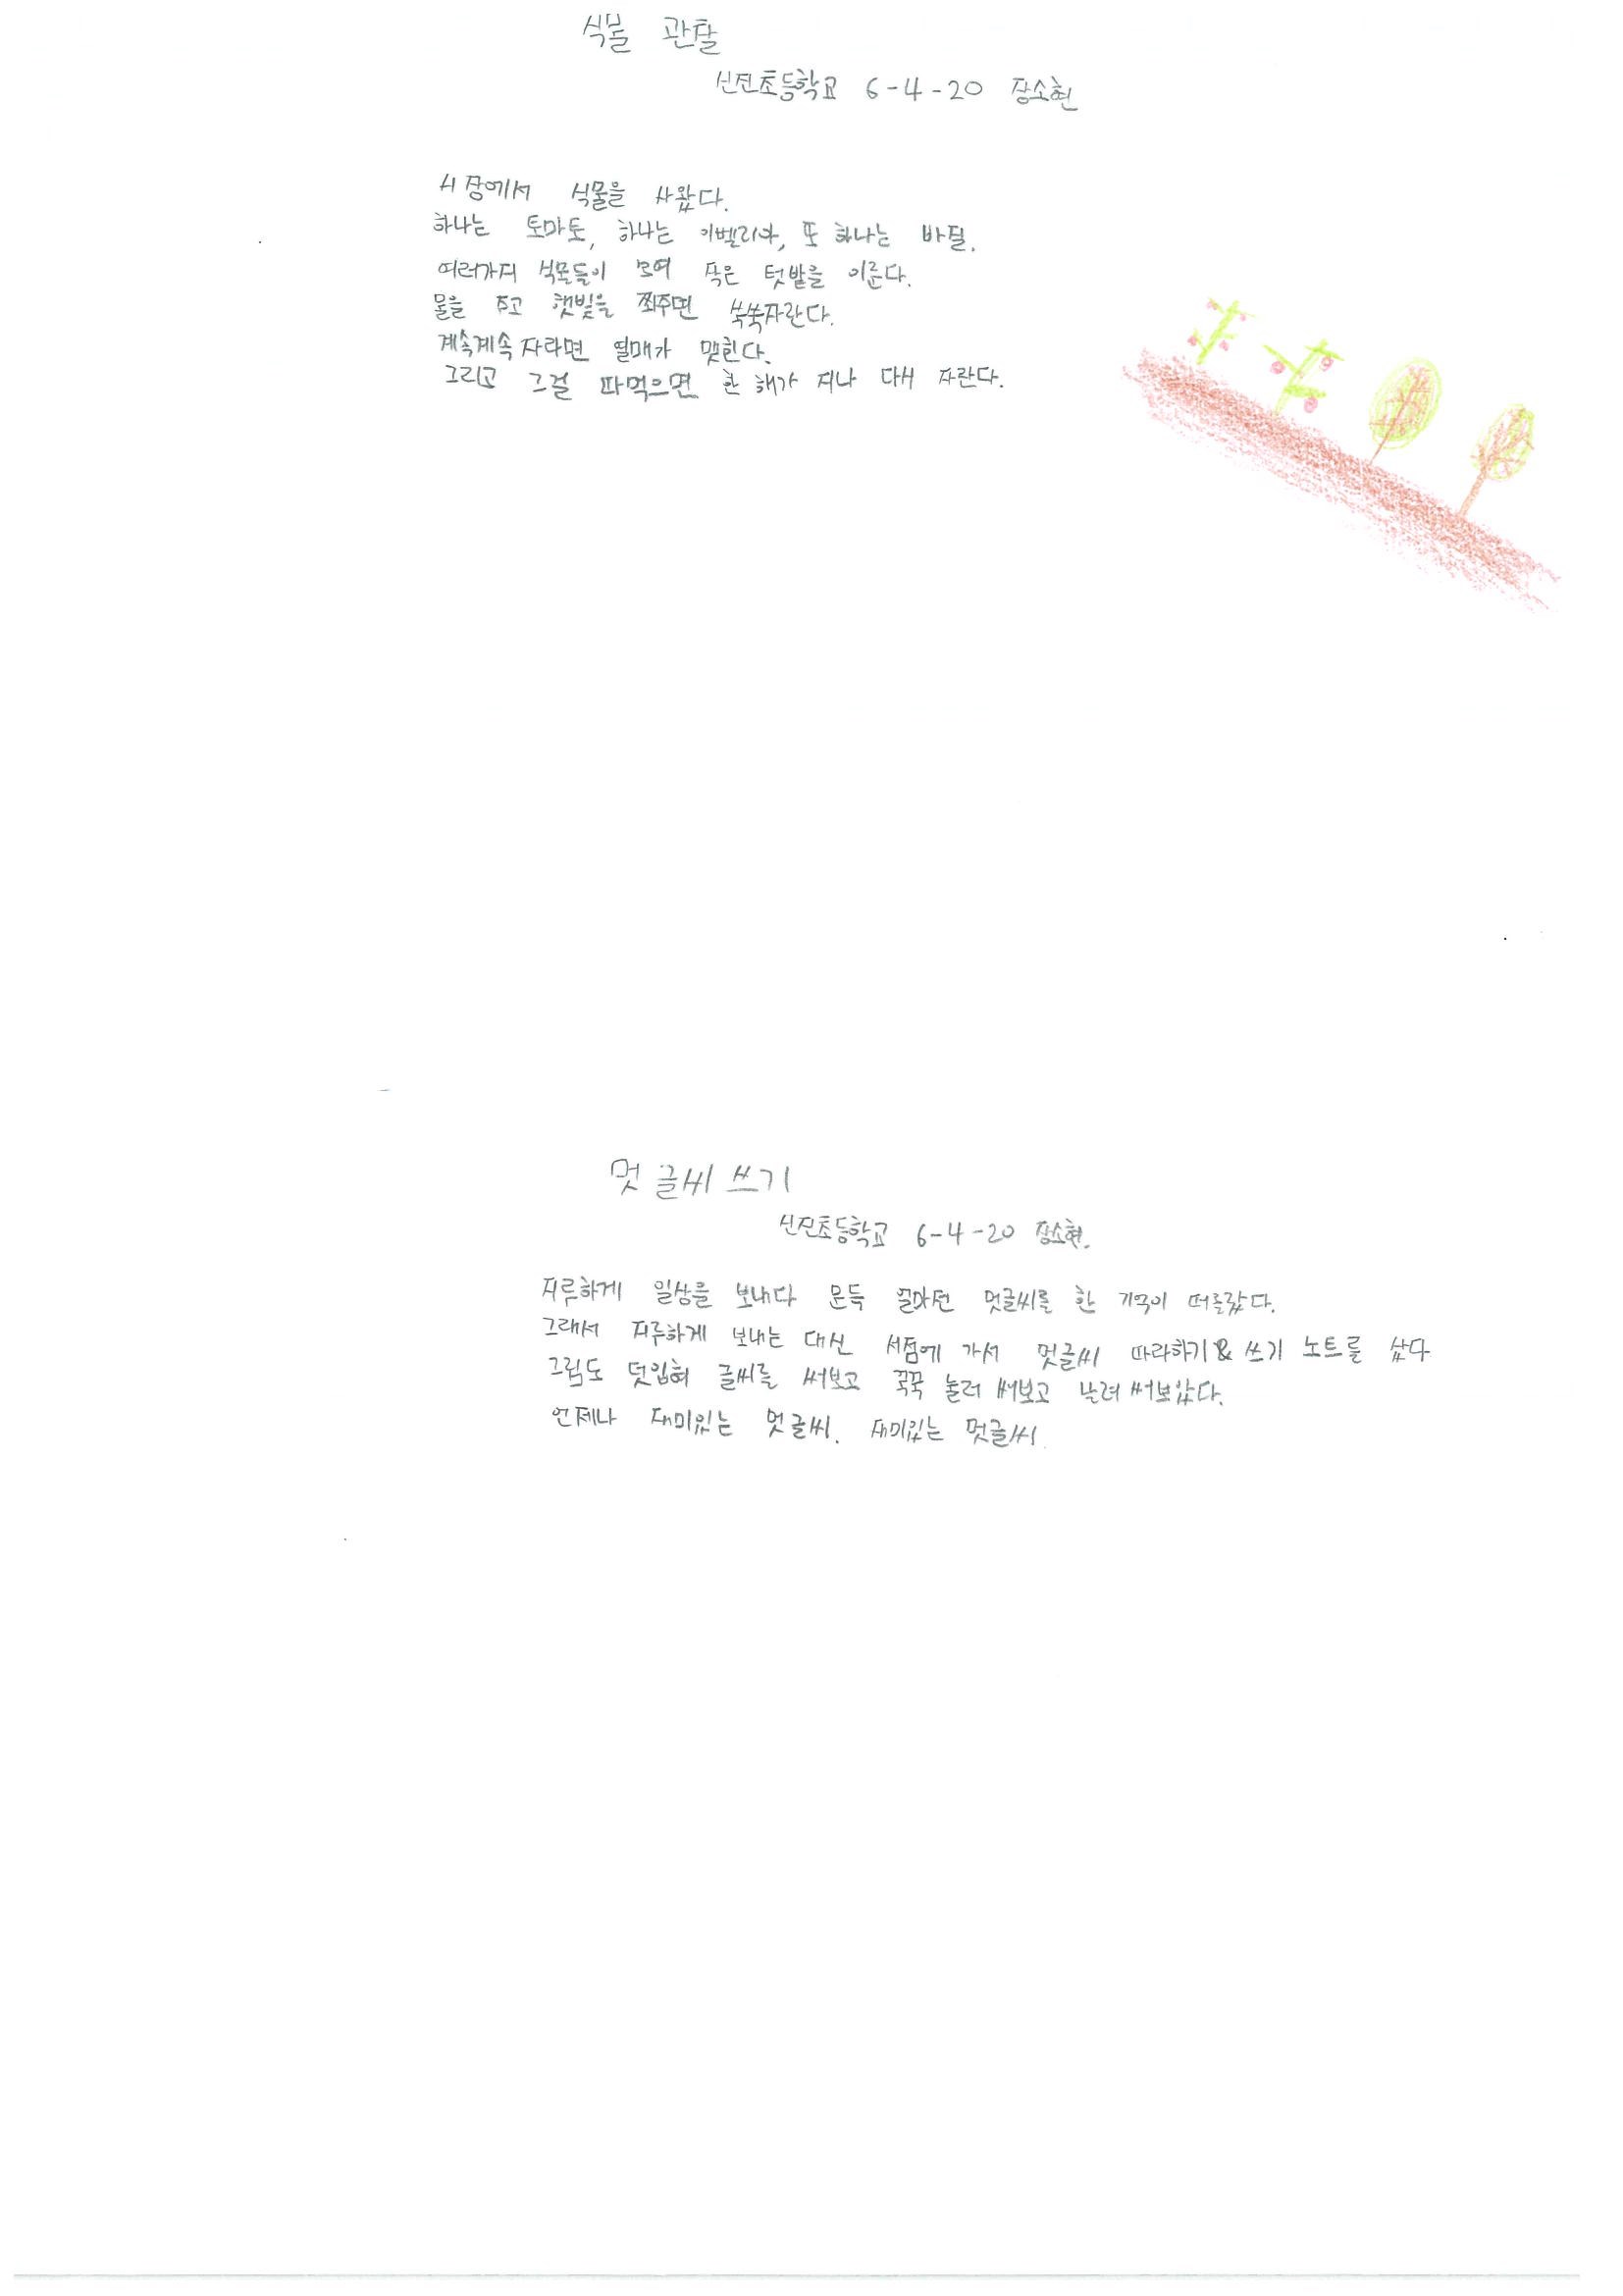 식물 관찰
신진초등학교 6-4-20 장소현
시장에서 식물을 사왔다.
하나는 토마토, 하나는 이벨리아, 또 하나는 바질.
여러가지 식물들이 모여 작은 텃밭을 이룬다.
물을 주고 햇빛을 쬐주면 쑥쑥자란다.
계속계속 자라면 열매가 맺힌다.
그리고 그걸 따먹으면 한 해가 지나 다시 자란다.
멋글씨 쓰기
신진초등학교 6-4-20 장소현.
지루하게 일상을 보내다 문득 얼마전 멋글씨를 한 기억이 떠올랐다.
그래서 지루하게 보내는 대신 서점에 가서 멋글씨 따라하기 & 쓰기 노트를 샀다
그림도 덧입혀 글씨를 써보고 꾹꾹 눌러 써보고 날려 써보았다.
언제나 재미있는 멋글씨. 재미있는 멋글씨.